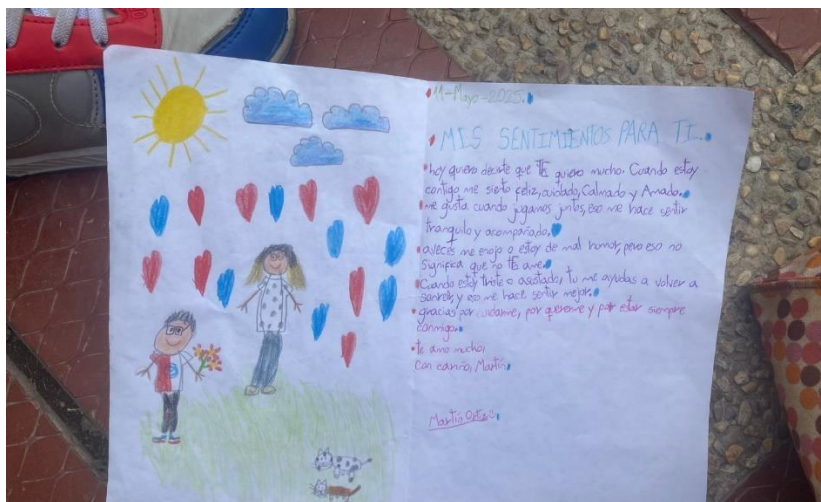 11-Mayo-2025.
MIS SENTIMIENTOS PARA TI.
hoy quiero decirte que TE quiero mucho. Cuando estoy
contigo me siento feliz, cuidado, Calmado y Amado.
me gusta cuando jugamos juntos, eso me hace sentir
tranquilo y acompañado.
aveces me enojo o estoy de mal humor, pero eso no
significa que no TE ame.
Cuando estoy triste o asustado, tu me ayudas a volver a
sonreír, y eso me hace sentir mejor.
gracias por cuidarme, por quererme y por estar siempre
conmigo.
te amo mucho,
Con cariño, Martín.
Martin Ortiz